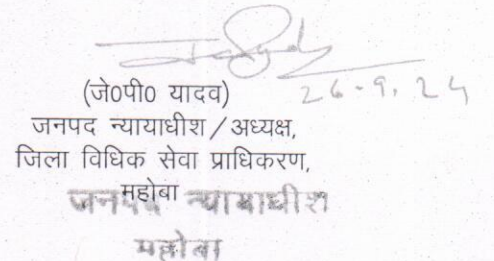 26.9.24
(जे0पी0 यादव)
जनपद न्यायाधीश/अध्यक्ष,
जिला विधिक सेवा प्राधिकरण,
महोबा
जनपद न्यायाधीश
महोबा